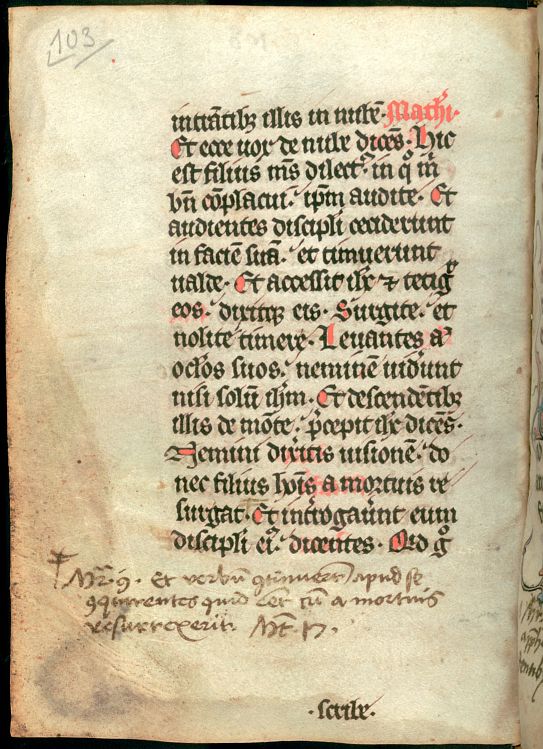 103
intrātibꝫ illis in nubē· Mathi·
Et ecce uox de nube dicēs· Hic
est filius mꝰs dilectꝰ· in q̊ m̄
bn̄ cōplacui· ipm̄ audite· Et
audientes discipli ceciderunt
in faciē suā· et timuerunt
ualde· Et accessit ihc̄ ⁊ tetigͭ
eos· dixitqꝫ eis· Surgite· et
nolite timere· Leuantes aͣ
oclos suos· neminē uid̓unt
nisi solū ihm̄· Et descendētibꝫ
illis de mōte· p̄cepit ihc̄ dicēs·
Nemini dixitis uisionē· do
nec filius hoīs a mortuis re
surgat· Et int̓rogau̓unt eum
discipli eiꝰ dicentes· Quid g̊
Mr̄· 9· Et verbū ꝯtinuer̄t apud se
ꝯquirentes quid eēt cū a mortuis
resurrexerit· Mt̄· 17·
·scribe·